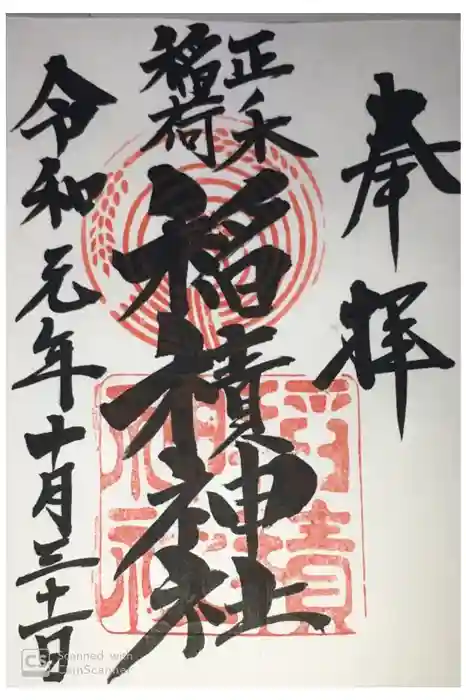 奉拝
正ノ木
稲荷
稲積神社
令和元年十月三十一日
稲積
神社
CS Scanned with
CamScanner